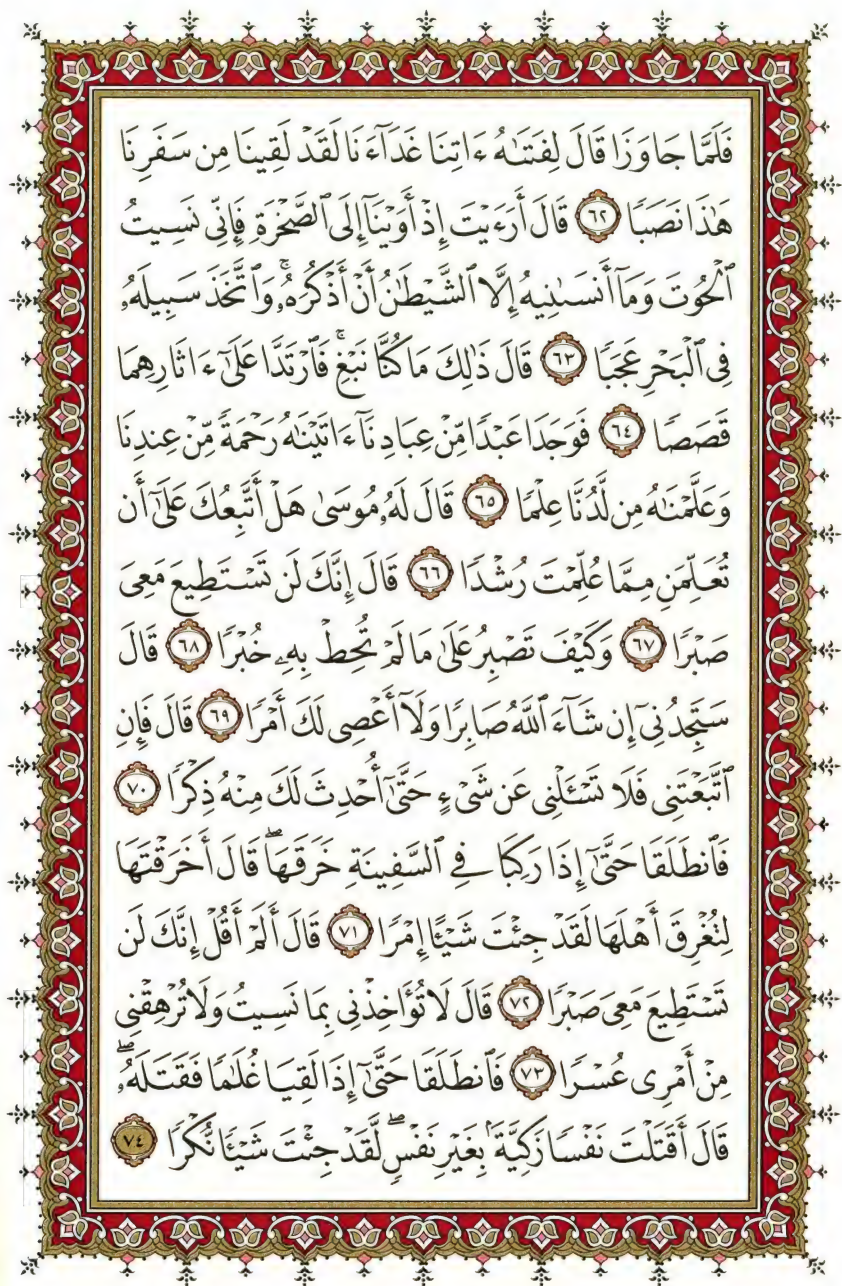 فَلَمَّا جَاوَزَا قَالَ لِفَتَىٰهُ ءَاتِنَا غَدَآءَنَا لَقَدْ لَقِينَا مِن سَفَرِنَا
هَٰذَا نَصَبًا ٦٢ قَالَ أَرَءَيْتَ إِذْ أَوَيْنَآ إِلَى ٱلصَّخْرَةِ فَإِنِّى نَسِيتُ
ٱلْحُوتَ وَمَآ أَنسَىٰنِيهُ إِلَّا ٱلشَّيْطَٰنُ أَنْ أَذْكُرَهُۥ ۚ وَٱتَّخَذَ سَبِيلَهُۥ
فِى ٱلْبَحْرِ عَجَبًا ٦٣ قَالَ ذَٰلِكَ مَا كُنَّا نَبْغِ ۚ فَٱرْتَدَّا عَلَىٰٓ ءَاثَارِهِمَا
قَصَصًا ٦٤ فَوَجَدَا عَبْدًا مِّنْ عِبَادِنَآ ءَاتَيْنَٰهُ رَحْمَةً مِّنْ عِندِنَا
وَعَلَّمْنَٰهُ مِن لَّدُنَّا عِلْمًا ٦٥ قَالَ لَهُۥ مُوسَىٰ هَلْ أَتَّبِعُكَ عَلَىٰٓ أَن
تُعَلِّمَنِ مِمَّا عُلِّمْتَ رُشْدًا ٦٦ قَالَ إِنَّكَ لَن تَسْتَطِيعَ مَعِىَ
صَبْرًا ٦٧ وَكَيْفَ تَصْبِرُ عَلَىٰ مَا لَمْ تُحِطْ بِهِۦ خُبْرًا ٦٨ قَالَ
سَتَجِدُنِىٓ إِن شَآءَ ٱللَّهُ صَابِرًا وَلَآ أَعْصِى لَكَ أَمْرًا ٦٩ قَالَ فَإِنِ
ٱتَّبَعْتَنِى فَلَا تَسْـَٔلْنِى عَن شَىْءٍ حَتَّىٰٓ أُحْدِثَ لَكَ مِنْهُ ذِكْرًا ٧٠
فَٱنطَلَقَا حَتَّىٰٓ إِذَا رَكِبَا فِى ٱلسَّفِينَةِ خَرَقَهَا ۖ قَالَ أَخَرَقْتَهَا
لِتُغْرِقَ أَهْلَهَا لَقَدْ جِئْتَ شَيْـًٔا إِمْرًا ٧١ قَالَ أَلَمْ أَقُلْ إِنَّكَ لَن
تَسْتَطِيعَ مَعِىَ صَبْرًا ٧٢ قَالَ لَا تُؤَاخِذْنِى بِمَا نَسِيتُ وَلَا تُرْهِقْنِى
مِنْ أَمْرِى عُسْرًا ٧٣ فَٱنطَلَقَا حَتَّىٰٓ إِذَا لَقِيَا غُلَٰمًا فَقَتَلَهُۥ ۖ
قَالَ أَقَتَلْتَ نَفْسًا زَكِيَّةًۢ بِغَيْرِ نَفْسٍ ۖ لَّقَدْ جِئْتَ شَيْـًٔا نُّكْرًا ٧٤